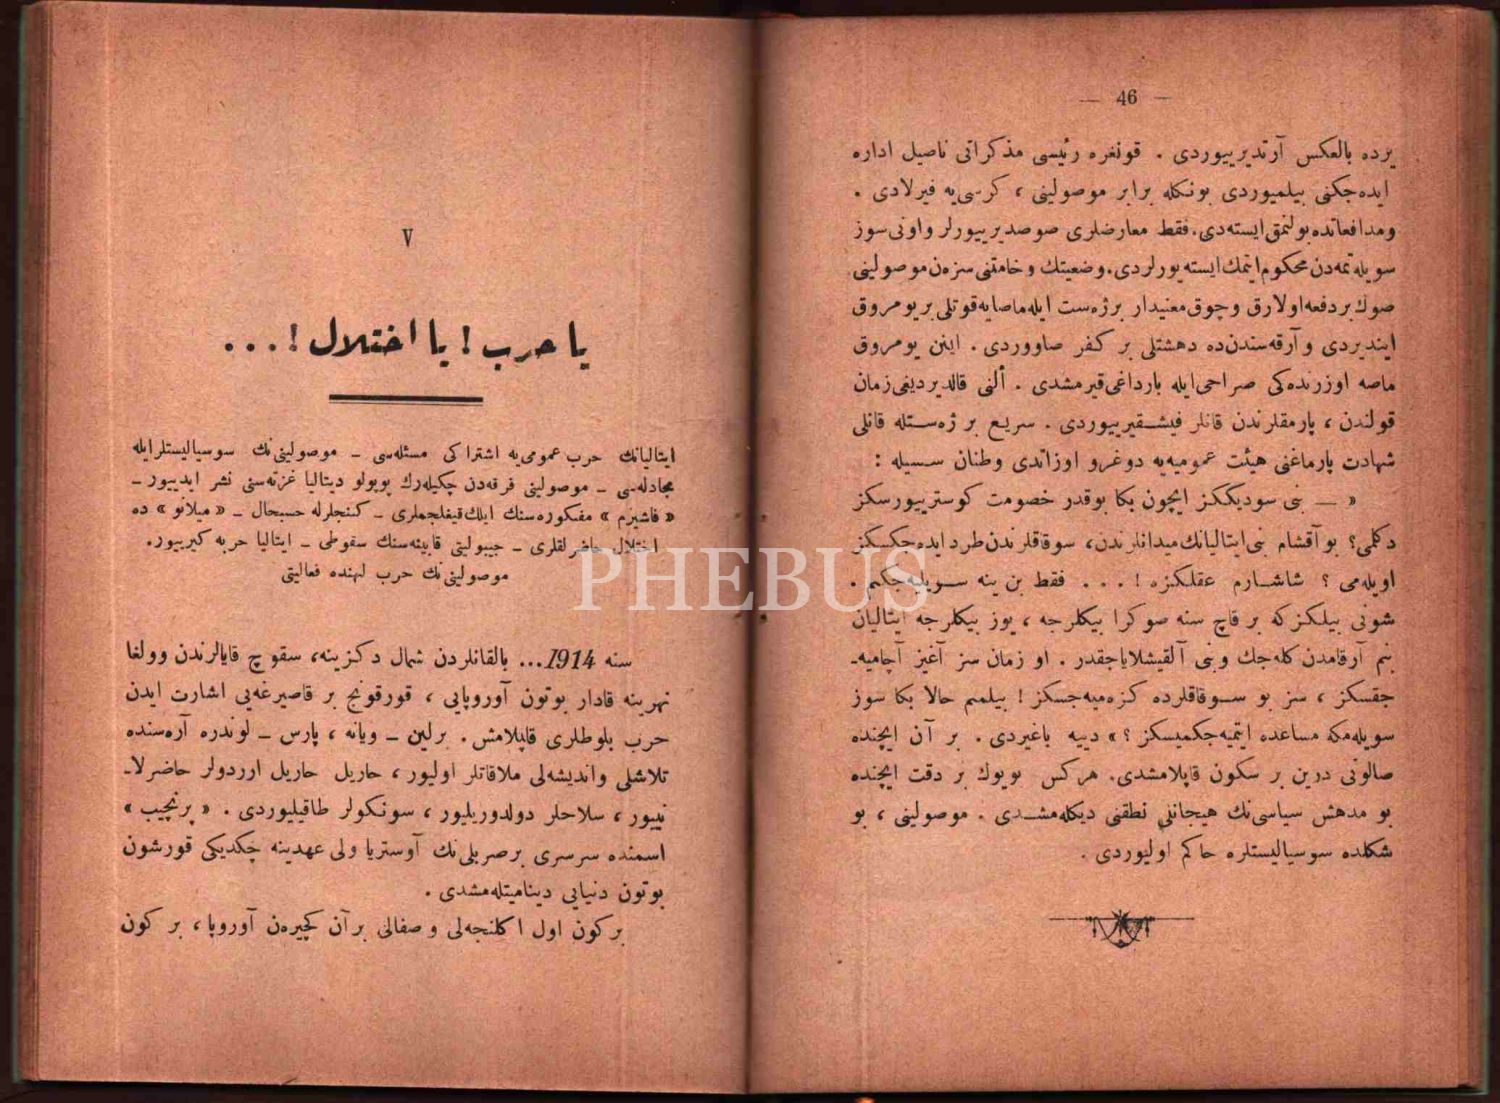 — 46 —
یرده بالعکس آرتدیرییوردی . قونغره رئیسی مذکراتی ناصیل اداره
ایده‌جکنی بیلمیوردی بونکله برابر موصولینی ، کرسی‌یه فیرلادی .
ومدافعاتده بولنمق ایسته‌دی. فقط معارضلری صوصدیرییورلر واونی سوز
سویله‌تمه‌دن محکوم ایتمك ایسته‌یورلردی. وضعیتك وخامتنی سزه‌ن موصولینی
صوك بردفعه اولارق وچوق معنیدار برژه‌ست ایله ماصایه قوتلی بریومروق
ایندیردی وآرقه‌سندن‌ده دهشتلی بر کفر صاووردی . اینن یومروق
ماصه اوزرنده‌کی صراحی‌ایله بارداغی قیرمشدی . ألنی قالدیردیغی زمان
قولندن ، پارمقلرندن قانلر فیشقیرییوردی . سریع بر ژه‌ستله قانلی
شهادت پارماغنی هیئت عمومیه‌یه دوغرو اوزاتدی وطنان سسیله :
« — بنی سودیککز ایچون بکا بوقدر خصومت کوسترییورسکز
دکلمی؟ بو آقشام بنی ایتالیانك میدانلرندن، سوقاقلرندن طرد ایده‌جکسکز
اویله‌می ؟ شاشارم عقلکزه ! . . . فقط بن ینه سویلیه‌جکم .
شونی بیلکزکه بر قاچ سنه صوکرا بیکلرجه ، یوز بیکلرجه ایتالیان
بنم آرقامدن کله‌جك وبنی آلقیشلایاجقدر . او زمان سز آغیز آچامیه‌ـ
جقسکز ، سز بو سوقاقلرده کزه‌میه‌جسکز ! بیلمم حالا بکا سوز
سویله‌مکه مساعده ایتمیه‌جکمیسکز ؟ » دییه باغیردی . بر آن ایچنده
صالونی درین بر سکون قاپلامشدی. هرکس بویوك بر دقت ایچنده
بو مدهش سیاسی‌نك هیجانلی نطقنی دیکله‌مشدی . موصولینی ، بو
شکلده سوسیالیستلره حاکم اولیوردی .
V
یا حرب ! یا اختلال ! . . .
ایتالیانك حرب عمومی‌یه اشتراکی مسئله‌سی – موصولینی‌نك سوسیالیستلرایله
مجادله‌سی – موصولینی فرقه‌دن چکیله‌رك پوپولو دیتالیا غزته‌سنی نشر ایدییور –
« فاشیزم » مفکوره‌سنك ایلك قیغلجملری – کنجلرله حسبحال – « میلانو » ده
اختلال حاضرلقلری – جیولیتی قابینه‌سنك سقوطی – ایتالیا حربه کیرییور.
موصولینی‌نك حرب لهنده فعالیتی
PHEBUS
سنه 1914... بالقانلردن شمال دکزینه، سقوچ قایالرندن وولغا
نهرینه قادار بوتون آوروپایی ، قورقونج بر قاصیرغه‌یی اشارت ایدن
حرب بلوطلری قاپلامش. برلین – ویانه ، پارس – لوندره آره‌سنده
تلاشلی واندیشه‌لی ملاقاتلر اولیور ، حاریل حاریل اردولر حاضرلاـ
نییور ، سلاحلر دولدوریلیور ، سونکولر طاقیلیوردی . « پرنچیب »
اسمنده سرسری برصربلی‌نك آوستریا ولی عهدینه چکدیکی قورشون
بوتون دنیایی دینامیتله‌مشدی .
برکون اول اکلنجه‌لی وصفالی برآن کچیره‌ن آوروپا ، بر کون